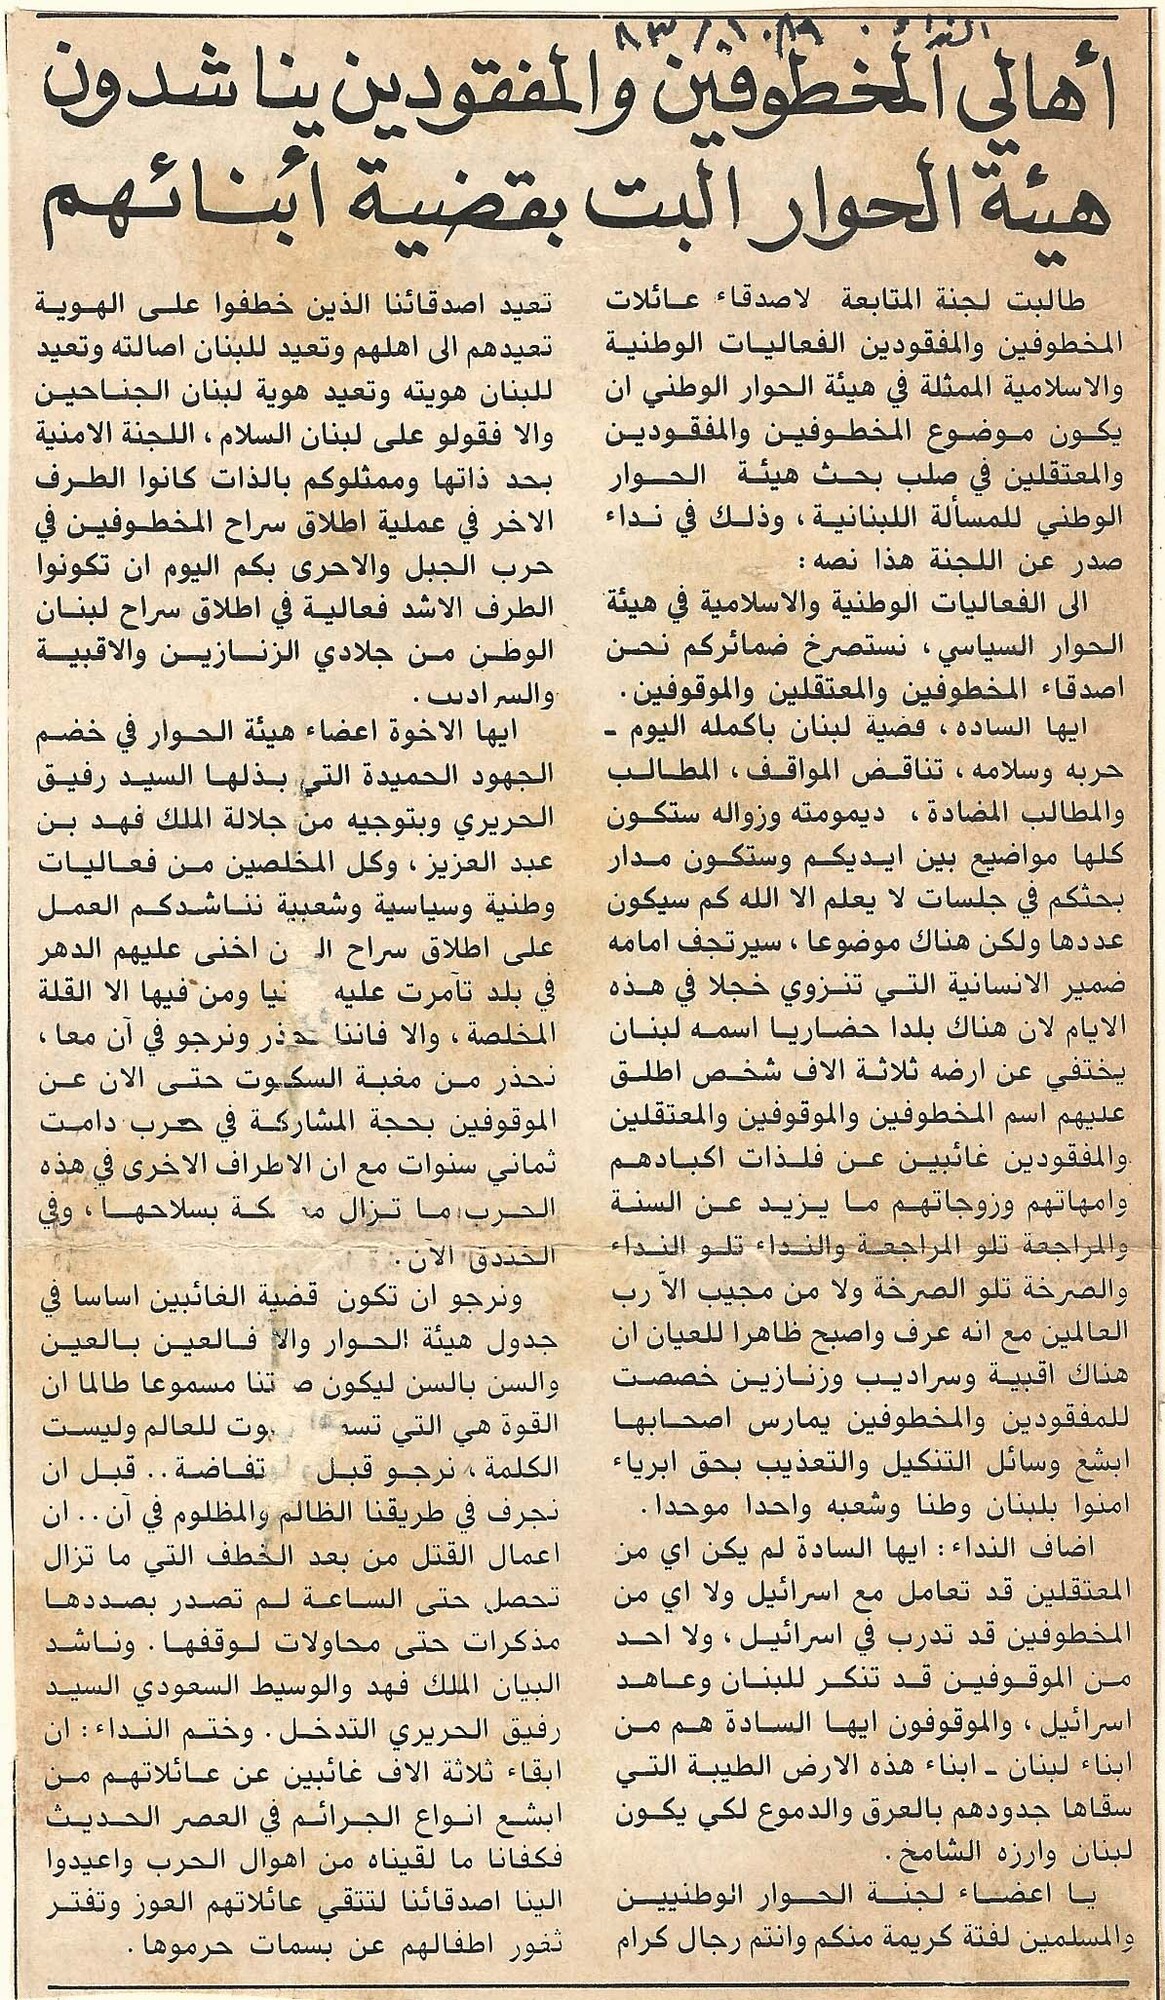 النداء ١٩/١٠/٨٣
أهالي المخطوفين والمفقودين يناشدون
هيئة الحوار البت بقضية أبنائهم
طالبت لجنة المتابعة لاصدقاء عائلات
المخطوفين والمفقودين الفعاليات الوطنية
والاسلامية الممثلة في هيئة الحوار الوطني ان
يكون موضوع المخطوفين والمفقودين
والمعتقلين في صلب بحث هيئة الحوار
الوطني للمسألة اللبنانية، وذلك في نداء
صدر عن اللجنة هذا نصه:
الى الفعاليات الوطنية والاسلامية في هيئة
الحوار السياسي، نستصرخ ضمائركم نحن
اصدقاء المخطوفين والمعتقلين والموقوفين.
ايها الساده، قضية لبنان باكمله اليوم -
حربه وسلامه، تناقض المواقف، المطالب
والمطالب المضادة، ديمومته وزواله ستكون
كلها مواضيع بين ايديكم وستكون مدار
بحثكم في جلسات لا يعلم الا الله كم سيكون
عددها ولكن هناك موضوعا، سيرتجف امامه
ضمير الانسانية التي تنزوي خجلا في هذه
الايام لان هناك بلدا حضاريا اسمه لبنان
يختفي عن ارضه ثلاثة الاف شخص اطلق
عليهم اسم المخطوفين والموقوفين والمعتقلين
والمفقودين غائبين عن فلذات اكبادهم
وامهاتهم وزوجاتهم ما يزيد عن السنة
والمراجعة تلو المراجعة والنداء تلو النداء
والصرخة تلو الصرخة ولا من مجيب الا رب
العالمين مع انه عرف واصبح ظاهرا للعيان ان
هناك اقبية وسراديب وزنازين خصصت
للمفقودين والمخطوفين يمارس اصحابها
ابشع وسائل التنكيل والتعذيب بحق ابرياء
امنوا بلبنان وطنا وشعبه واحدا موحدا.
اضاف النداء: ايها السادة لم يكن اي من
المعتقلين قد تعامل مع اسرائيل ولا اي من
المخطوفين قد تدرب في اسرائيل، ولا احد
من الموقوفين قد تنكر للبنان وعاهد
اسرائيل، والموقوفون ايها السادة هم من
ابناء لبنان - ابناء هذه الارض الطيبة التي
سقاها جدودهم بالعرق والدموع لكي يكون
لبنان وارزه الشامخ.
يا اعضاء لجنة الحوار الوطنيين
والمسلمين لفتة كريمة منكم وانتم رجال كرام
تعيد اصدقائنا الذين خطفوا على الهوية
تعيدهم الى اهلهم وتعيد للبنان اصالته وتعيد
للبنان هويته وتعيد هوية لبنان الجناحين
والا فقولو على لبنان السلام، اللجنة الامنية
بحد ذاتها وممثلوكم بالذات كانوا الطرف
الاخر في عملية اطلاق سراح المخطوفين في
حرب الجبل والاحرى بكم اليوم ان تكونوا
الطرف الاشد فعالية في اطلاق سراح لبنان
الوطن من جلادي الزنازين والاقبية
والسراديب.
ايها الاخوة اعضاء هيئة الحوار في خضم
الجهود الحميدة التي بذلها السيد رفيق
الحريري وبتوجيه من جلالة الملك فهد بن
عبد العزيز، وكل المخلصين من فعاليات
وطنية وسياسية وشعبية نناشدكم العمل
على اطلاق سراح اخنى عليهم الدهر
في بلد تآمرت عليه ومن فيها الا القلة
المخلصة، والا فاننا نحذر ونرجو في آن معا،
نحذر من مغبة السكوت حتى الان عن
الموقوفين بحجة المشاركة في حرب دامت
ثماني سنوات مع ان الاطراف الاخرى في هذه
الحرب ما تزال بسلاحها، وفي
الخندق الآن.
ونرجو ان تكون قضية الغائبين اساسا في
جدول هيئة الحوار والا فالعين بالعين
والسن بالسن ليكون صوتنا مسموعا طالما ان
القوة هي التي للعالم وليست
الكلمة، نرجو قبل .. قبل ان
نجرف في طريقنا الظالم والمظلوم في آن.. ان
اعمال القتل من بعد الخطف التي ما تزال
تحصل حتى الساعة لم تصدر بصددها
مذكرات حتى محاولات لوقفها. وناشد
البيان الملك فهد والوسيط السعودي السيد
رفيق الحريري التدخل. وختم النداء: ان
ابقاء ثلاثة الاف غائبين عن عائلاتهم من
ابشع انواع الجرائم في العصر الحديث
فكفانا ما لقيناه من اهوال الحرب واعيدوا
الينا اصدقائنا لتتقي عائلاتهم العوز وتفتر
ثغور اطفالهم عن بسمات حرموها.